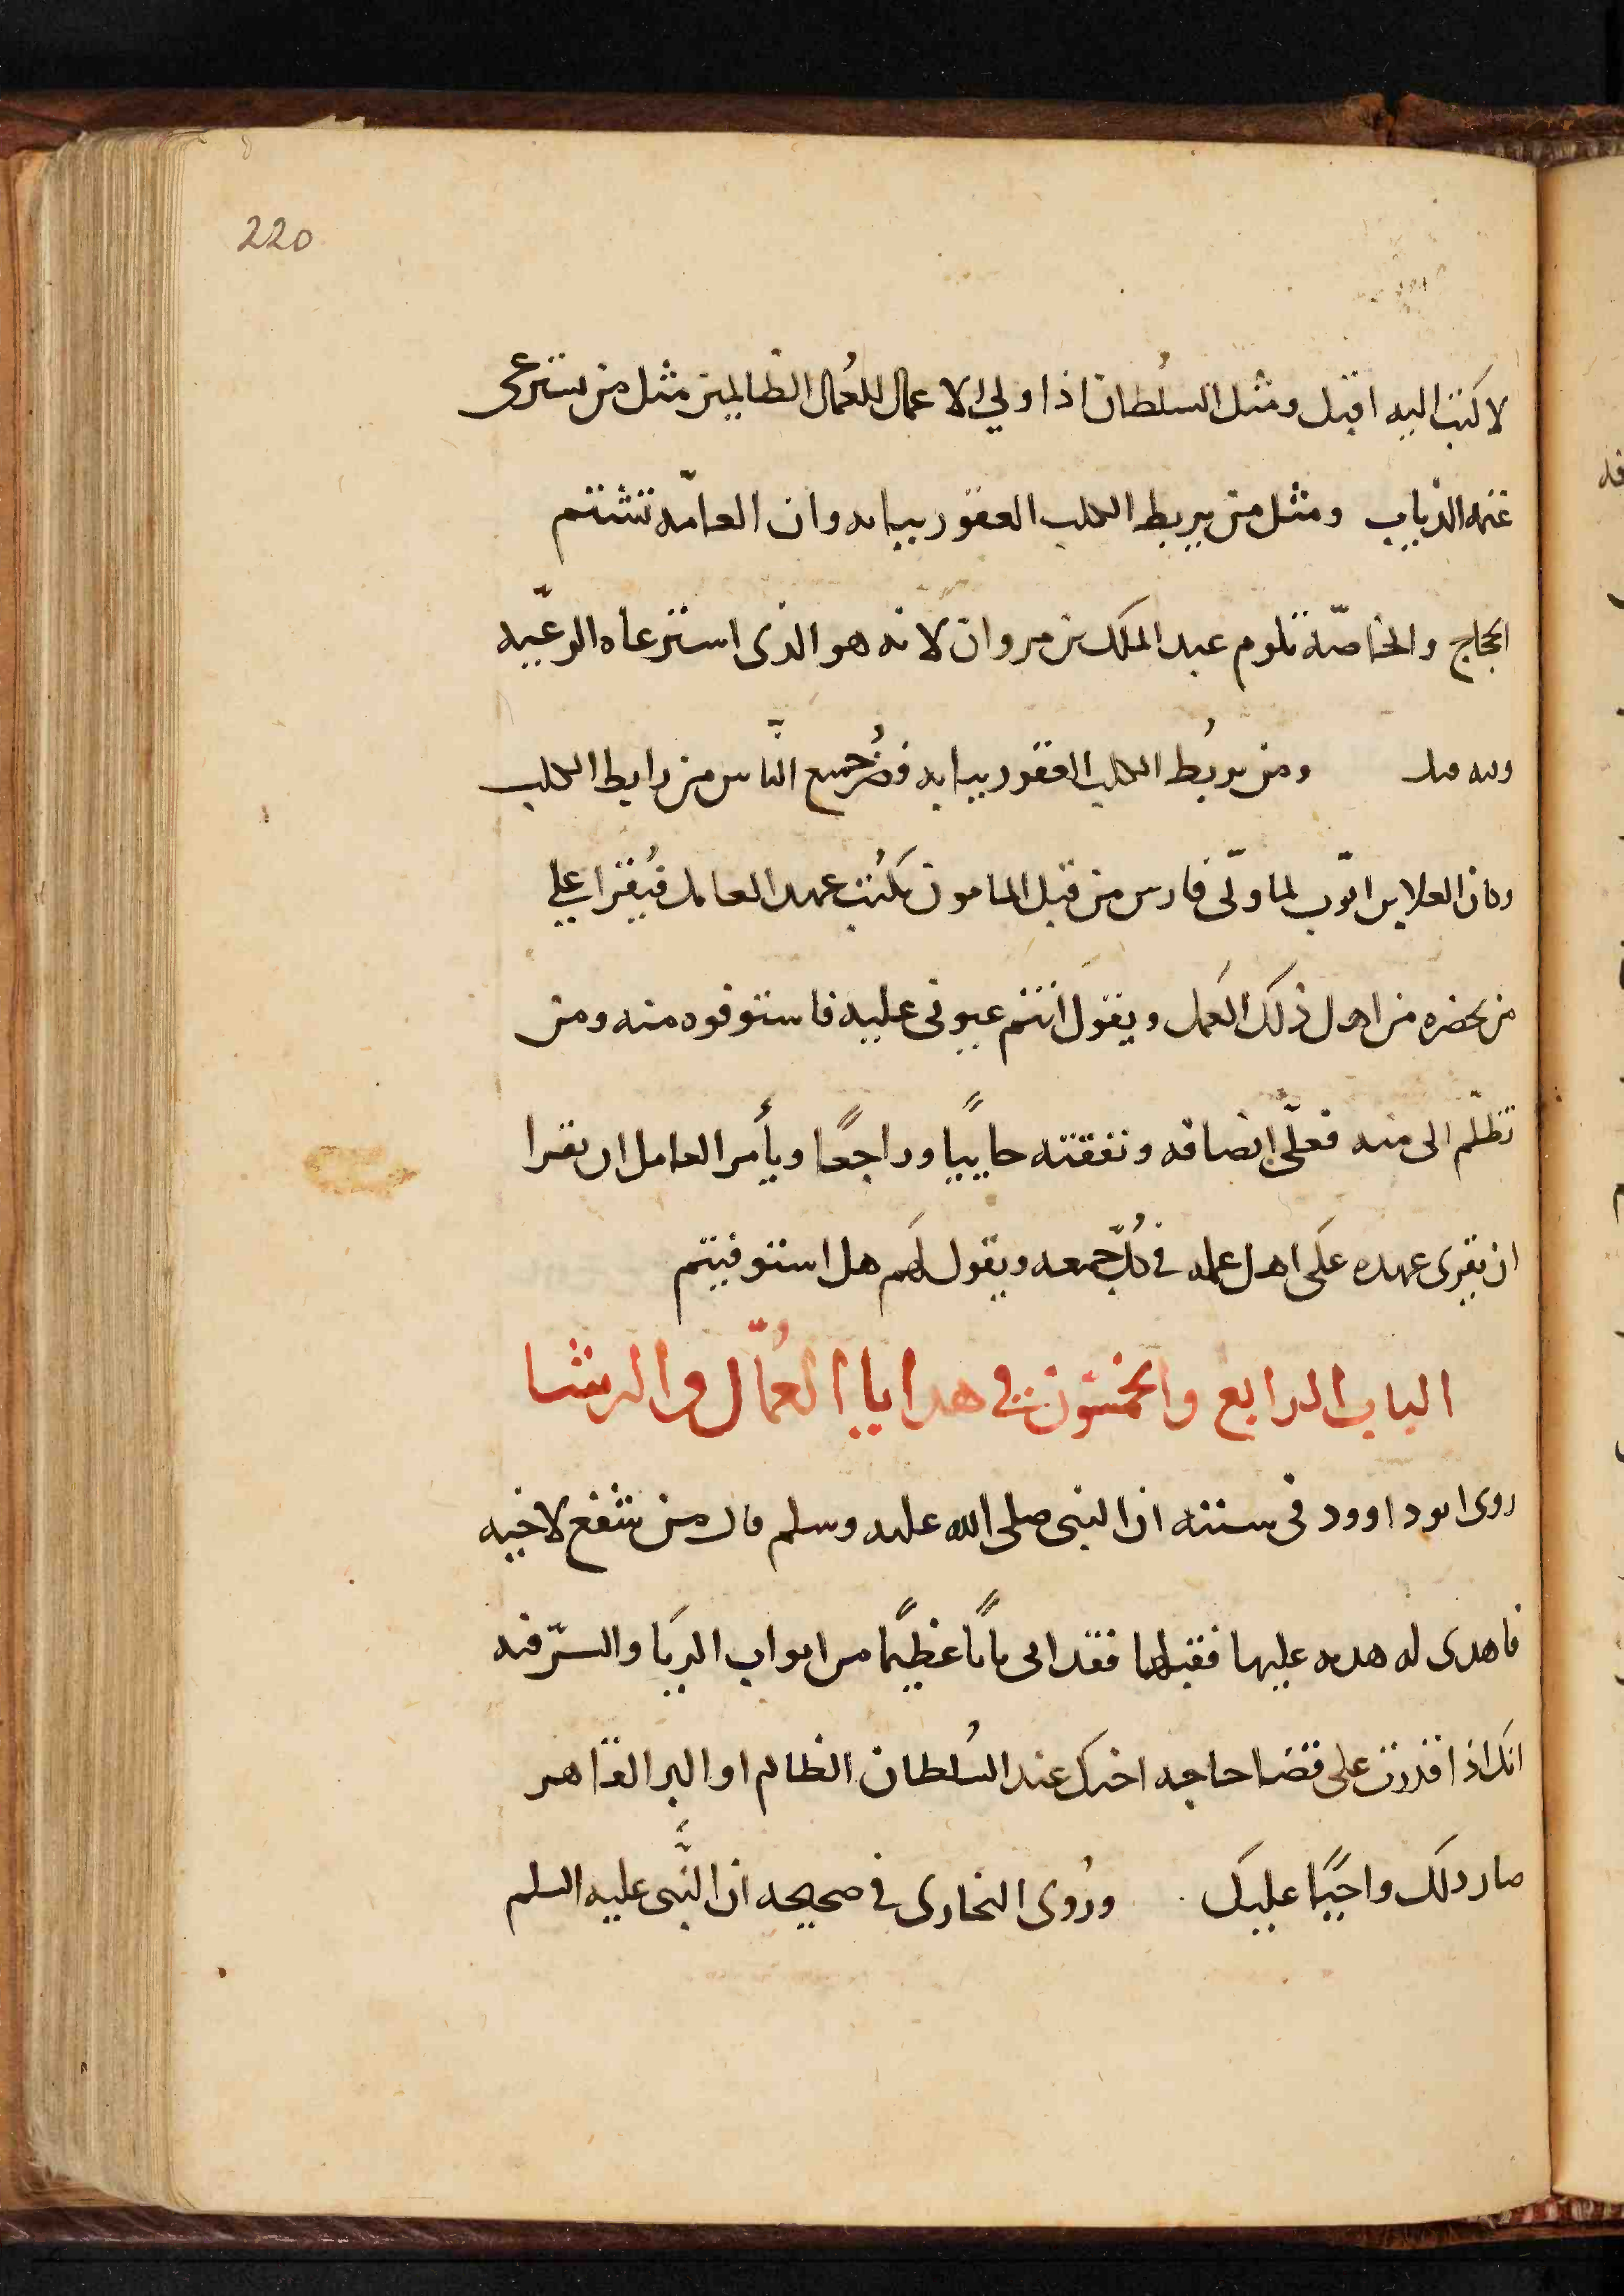 220
لاكتب اليه اقبل ومثل السلطان اذا ولي الاعمال للعُمال الظالمين مثل من يسترعى
غنمه الذياب ومثل من يربط الكلب العقور ببابه وان العامّه تشتم
الحجاج والخاصّه تلوم عبد الملك بن مروان لانه هو الذى استرعاه الرعّيه
وله مثل ومن يربُط الكلب العقور ببابه فضُر جميع النَّاس من رابط الكلب
وكان العلا بن ايّوب لما ولّى فارس من قبل المامون يكتُب عهد العامل فيُقرا علي
من يحضره من اهل ذلك العَمل ويقول انتم عيونى عليه فاستوفوه منه ومن
تظلّم الى منه فعلّى انصافه ونفقته جاييًا وراجعًا ويأمر العامل ان يقرا
ان يقرى عهده على اهل عمله في كُلّ جمعه ويقول لهَم هل استوفيتم
الباب الرابع والخمسُون في هدايا العُمّال والرشا
روى ابو داوود فى سننه ان النبى صلى الله عليه وسلم قال من شفع لاخيه
فاهدى له هديه عليها فقبلها فقد اتى بابًا عظيًما من ابواب الربَا والسّر فيه
انك اذا قدرت على قضا حاجه اخيك عند السُلطان الظالم او البر القاهر
صار ذلك واجبًا عليك . ورُوى البخارى في صحيحه ان النَّبى عليه السلم